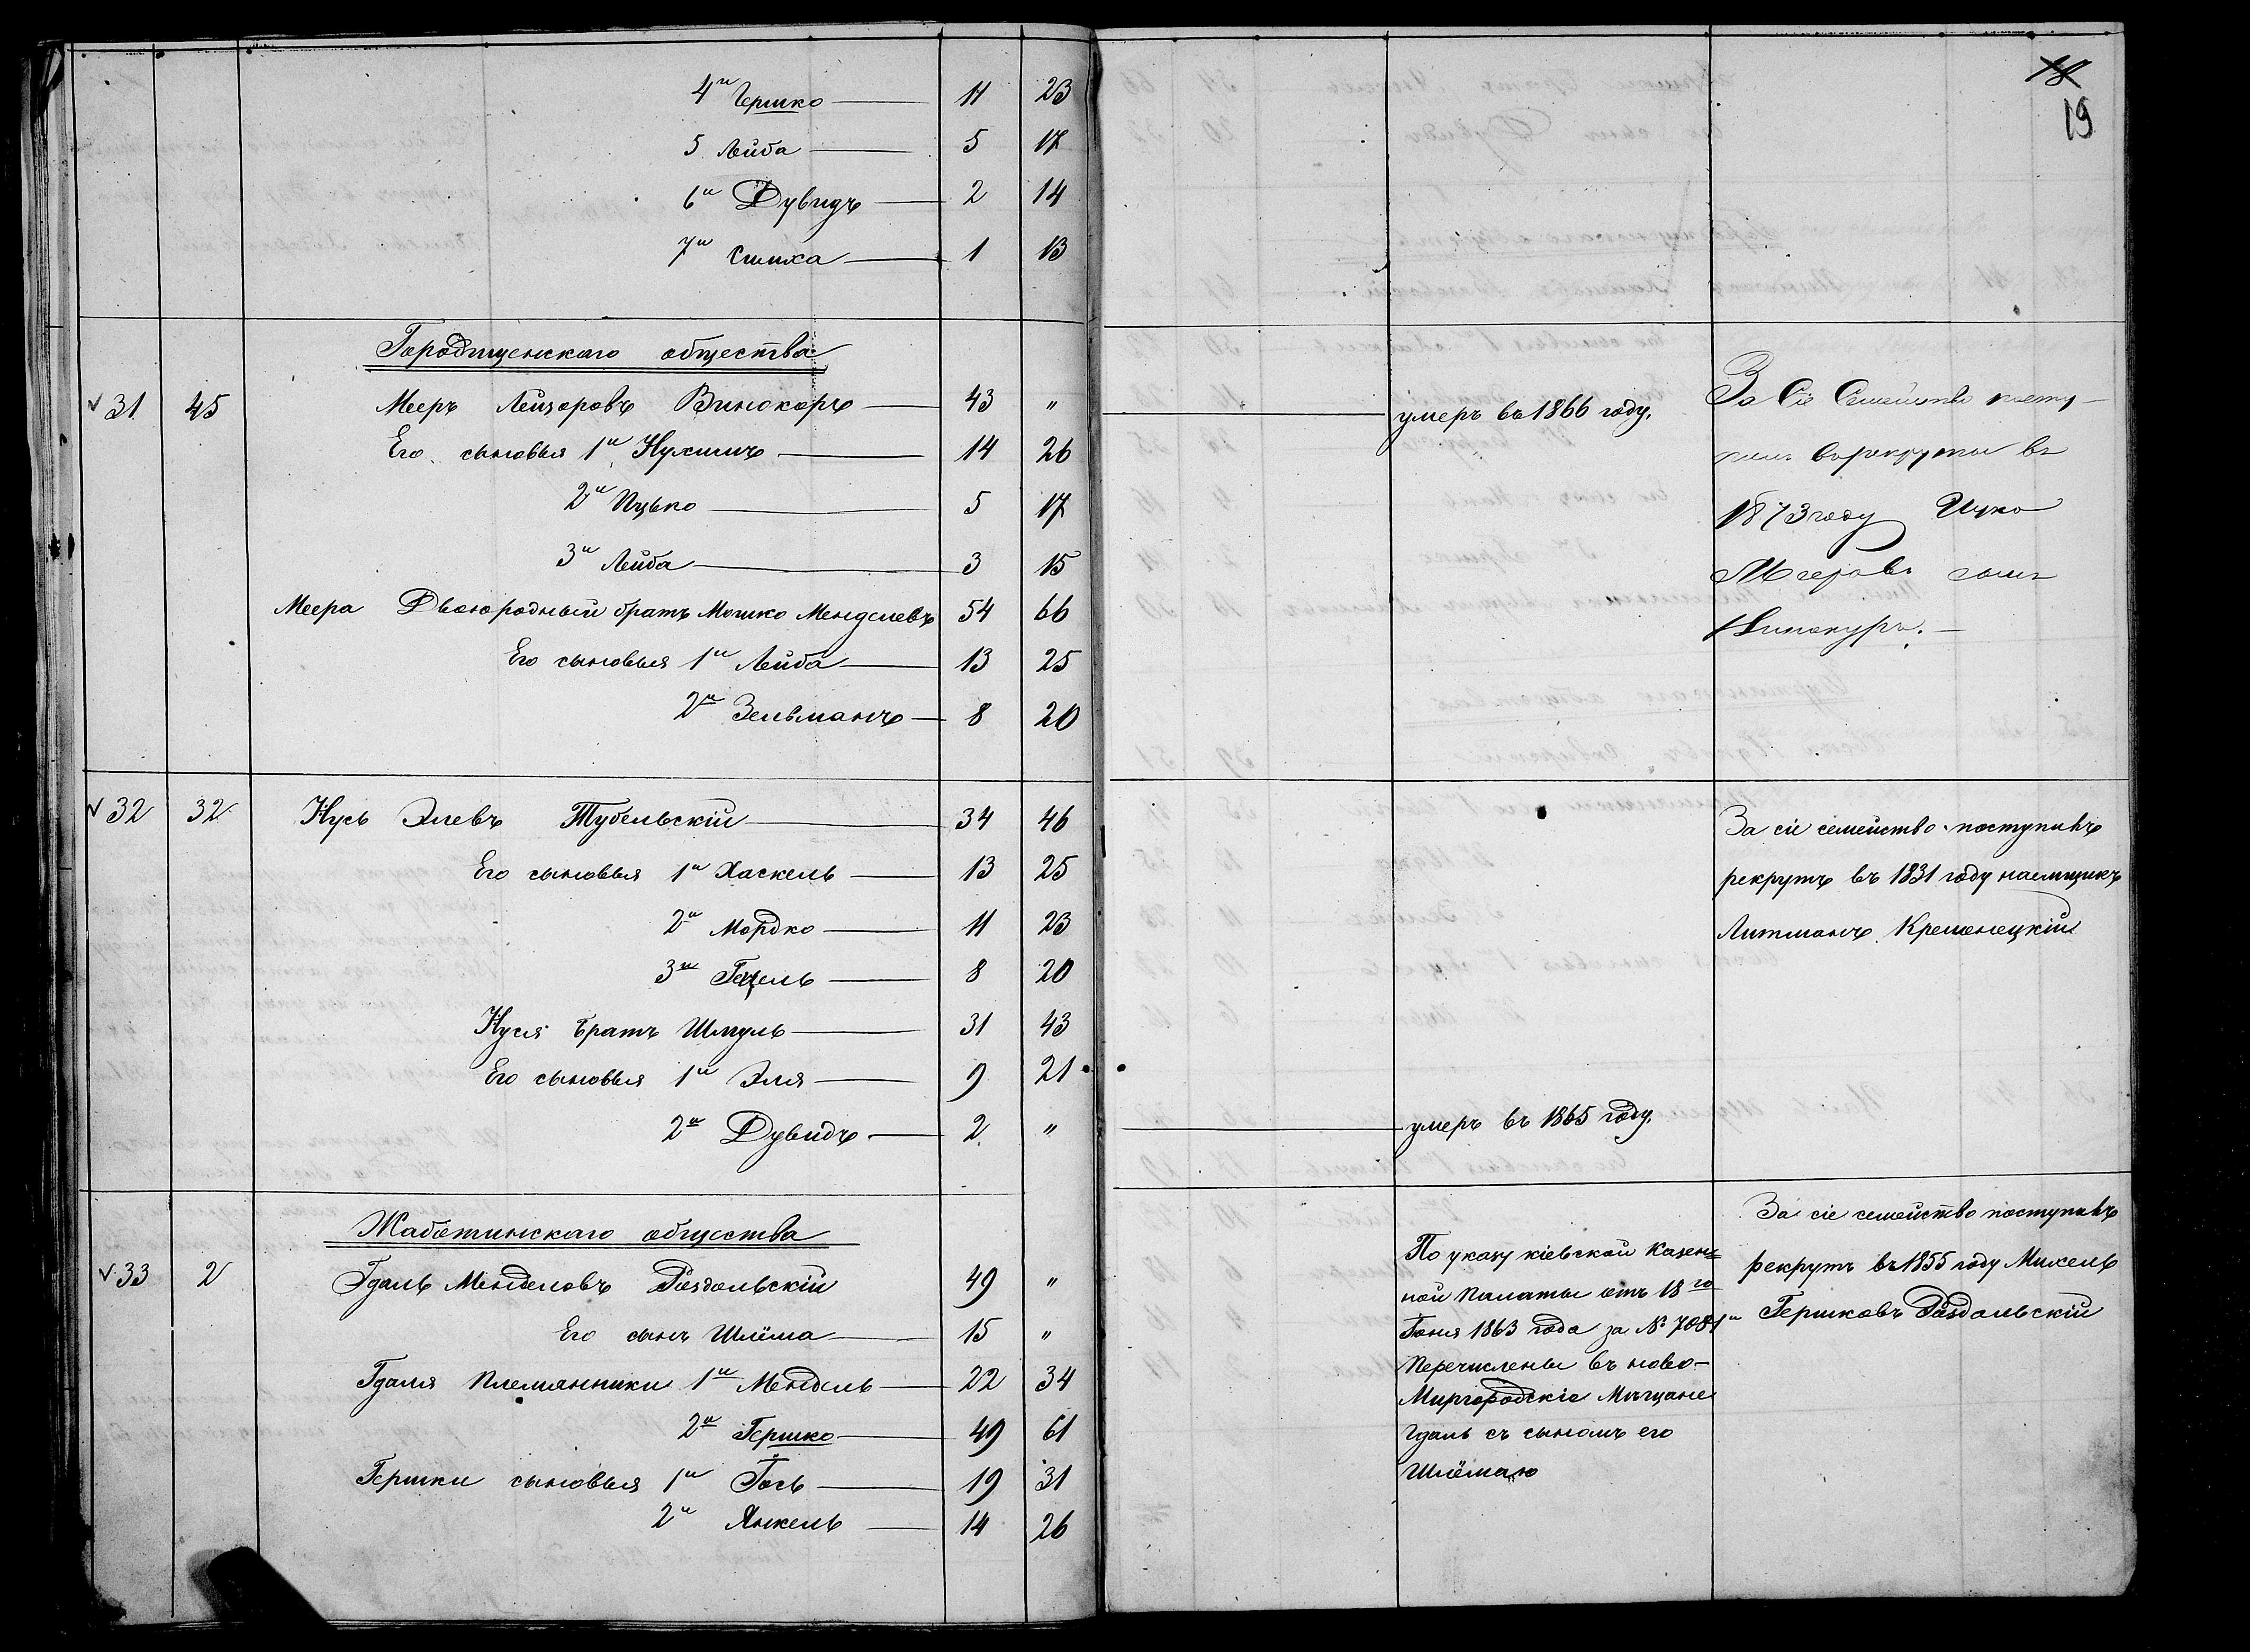 18
19
4й Гершко 11 23
5 Лейба 5 17
6й Дувидъ 2 14
7й Симха 1 13
Городищенскаго общества
31 45 Мееръ Лейзоровъ Винокоръ 43 " умеръ въ 1866 году.
Его сыновья 1й Нухимъ 14 26
2й Ицько 5 17
3й Лейба 3 15
Меера Двоюродный братъ Мошко Менделевъ 54 66
Его сыновья 1й Лейба 13 25
2й Зельманъ 8 20
За Сіе Семейство посту-
пилъ въ рекруты въ
1873 году Ицко
Мееровъ
Винокуръ.
32 32 Нусь Элевъ Тубельскій 34 46
Его сыновья 1й Хаскель 13 25
2й Мордко 11 23
3й Гецель 8 20
Нуся братъ Шмуль 31 43
Его сыновья 1й Эля 9 21
2й Дувидъ 2 " умеръ въ 1865 году.
За сіе семейство поступилъ
рекрутъ въ 1831 году наемщикъ
Литманъ Кременецкій
Жаботинскаго общества
33 2 Гдаль Менделовъ Роздольскій 49 "
Его сынъ Шлёма 15 "
Гдаля племянники 1й Мендель 22 34
2й Гершко 49 61
Гершки сыновья 1й Іось 19 31
2й Янкель 14 26
По указу кіевской Казен=
ной Палаты отъ 18го
Іюня 1863 года за № 7081м
Перечислены въ ново-
Миргородскіе Мѣщане
Гдаль съ сыномъ его
Шлёмаю
За сіе семейство поступилъ
рекрутъ въ 1855 году Михель
Гершковъ Раздольскій